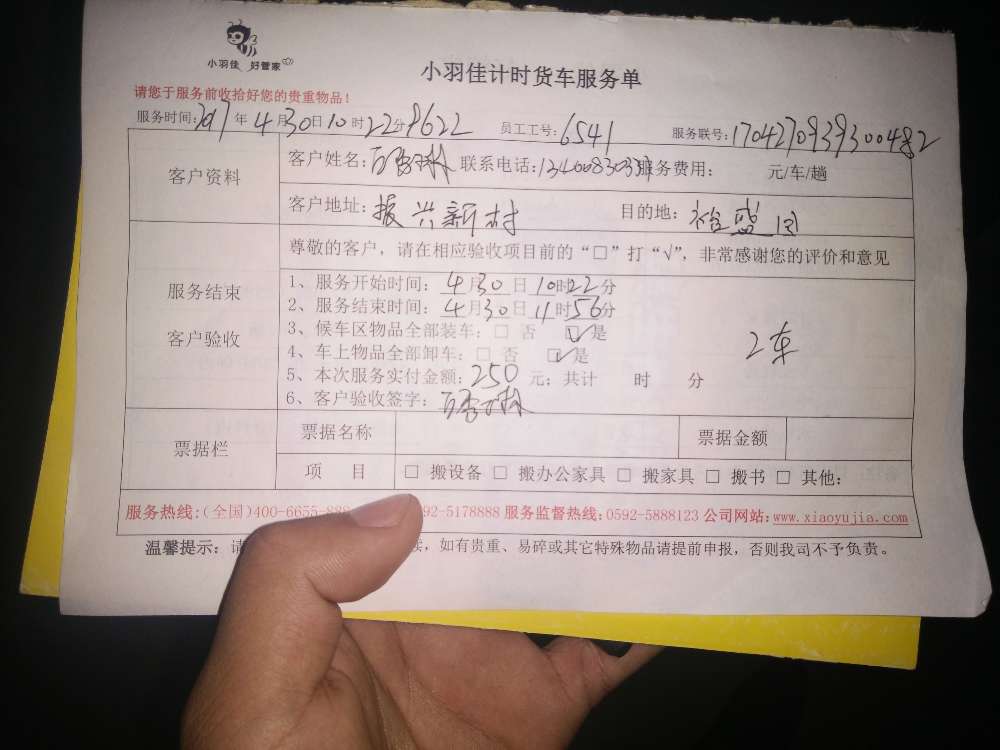 小羽佳 好管家
小羽佳计时货车服务单
请您于服务前收拾好您的贵重物品！
服务时间:2017年4月30日10时22分 9622 员工工号:6541 服务联号:1704270939300482
客户资料
客户姓名: 联系电话: 服务费用: 元/车/趟
客户地址:振兴新村 目的地:
尊敬的客户，请在相应验收项目前的“□”打“√”，非常感谢您的评价和意见
服务结束
客户验收
1、服务开始时间：4月30日10时22分
2、服务结束时间：4月30日11时56分
3、候车区物品全部装车：□ 否 ☑是
4、车上物品全部卸车：□ 否 ☑是
2车
5、本次服务实付金额：250元；共计 时 分
6、客户验收签字：
票据栏
票据名称 票据金额
项 目 □ 搬设备 □ 搬办公家具 □ 搬家具 □ 搬书 □ 其他：
服务热线:(全国)400-6655-88 92-5178888 服务监督热线:0592-5888123 公司网站:www.xiaoyujia.com
温馨提示：请 ，如有贵重、易碎或其它特殊物品请提前申报，否则我司不予负责。